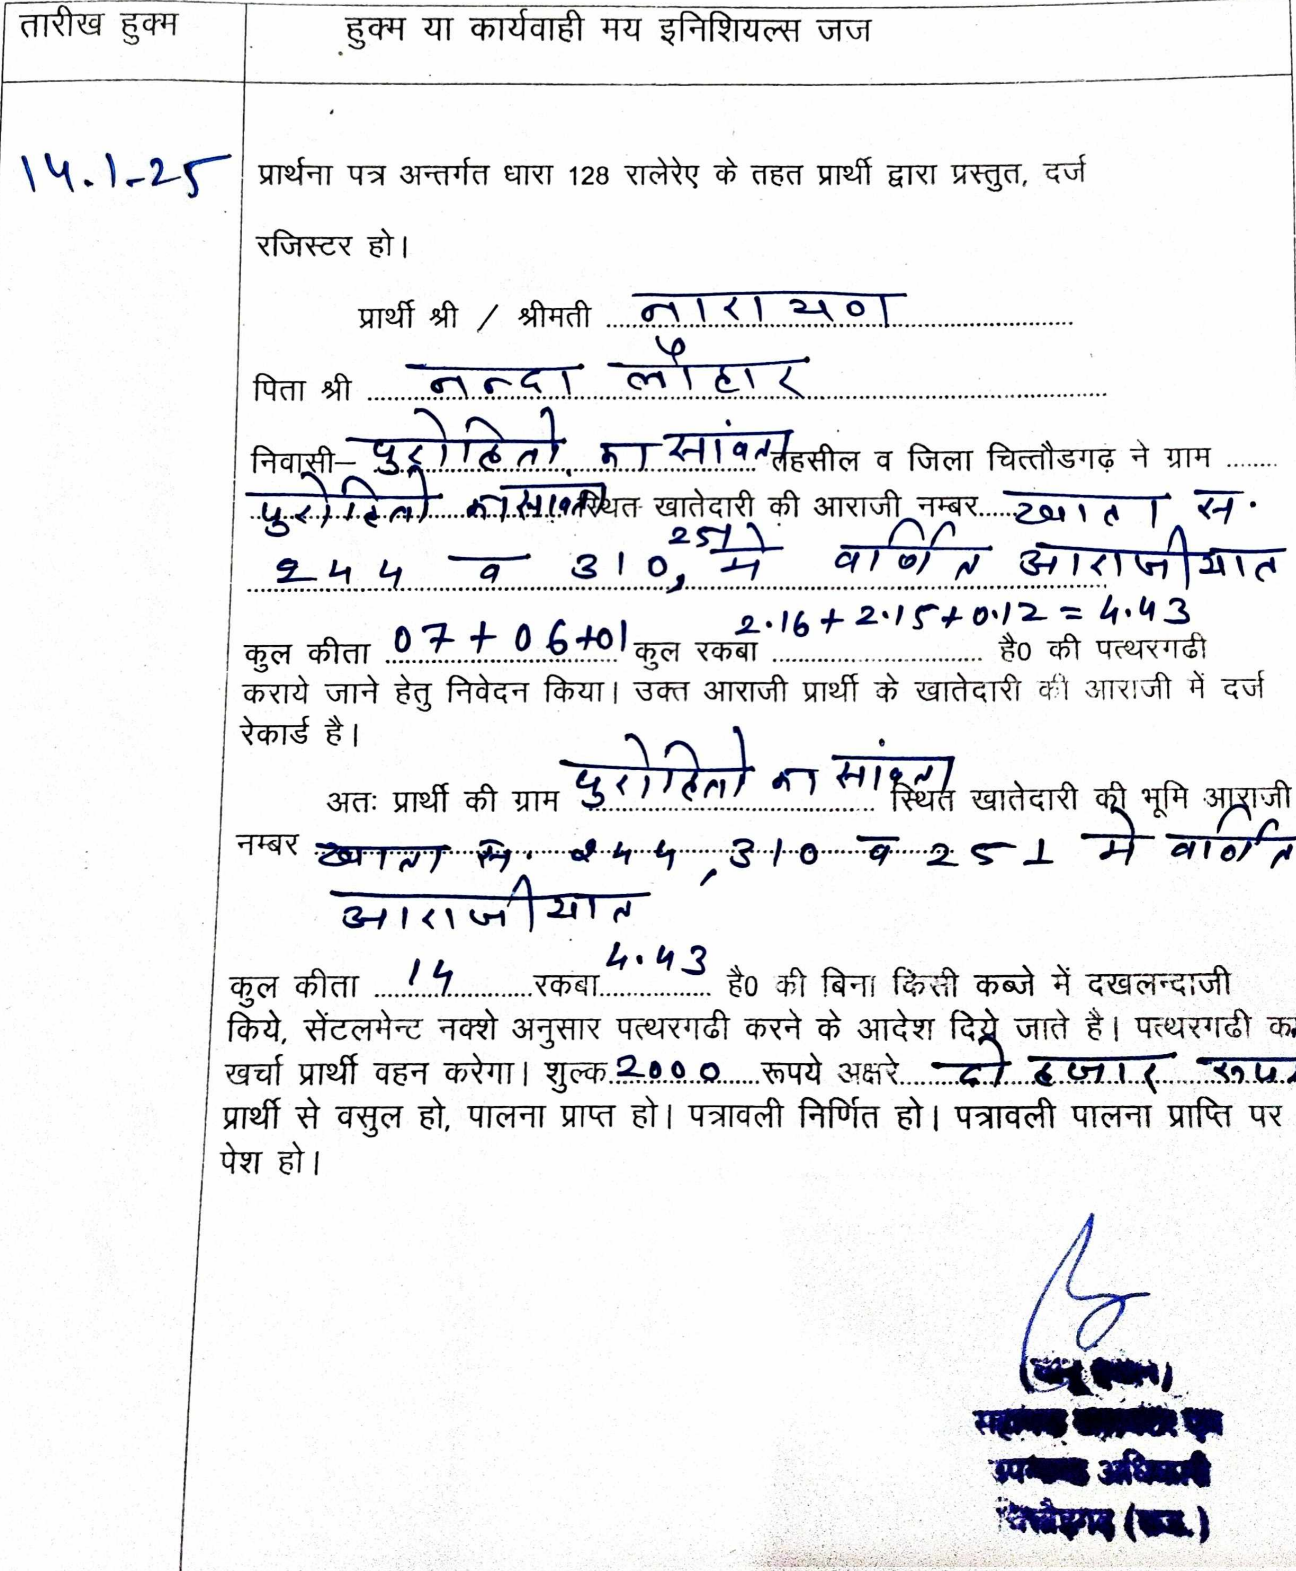 तारीख हुक्म
हुक्म या कार्यवाही मय इनिशियल्स जज
14.1-25
प्रार्थना पत्र अन्तर्गत धारा 128 रालेरेए के तहत प्रार्थी द्वारा प्रस्तुत, दर्ज
रजिस्टर हो।
प्रार्थी श्री / श्रीमती नारायण
पिता श्री नन्दा लौहार
निवासी– पुरोहितो का सांवता तहसील व जिला चित्तौडगढ़ ने ग्राम ........
पुरोहितो का सांवता स्थित खातेदारी की आराजी नम्बर..... खाता स.
244 व 310, 251 मे वार्णित आराजीयात
कुल कीता 07+06+01 कुल रकबा 2.16+2.15+0.12=4.43 है0 की पत्थरगढी
कराये जाने हेतु निवेदन किया। उक्त आराजी प्रार्थी के खातेदारी की आराजी में दर्ज
रेकार्ड है।
अतः प्रार्थी की ग्राम पुरोहितो का सांवता स्थित खातेदारी की भूमि आराजी
नम्बर खाता स. 244, 310 व 251 मे वार्णित
आराजीयात
कुल कीता 14 रकबा 4.43 है0 की बिना किसी कब्जे में दखलन्दाजी
किये, सेंटलमेन्ट नक्शे अनुसार पत्थरगढी करने के आदेश दिये जाते है। पत्थरगढी का
खर्चा प्रार्थी वहन करेगा। शुल्क 2000 रूपये अक्षरे दो हजार रूपये
प्रार्थी से वसुल हो, पालना प्राप्त हो। पत्रावली निर्णित हो। पत्रावली पालना प्राप्ति पर
पेश हो।
अधिकारी
चित्तौड़गढ़ (राज.)